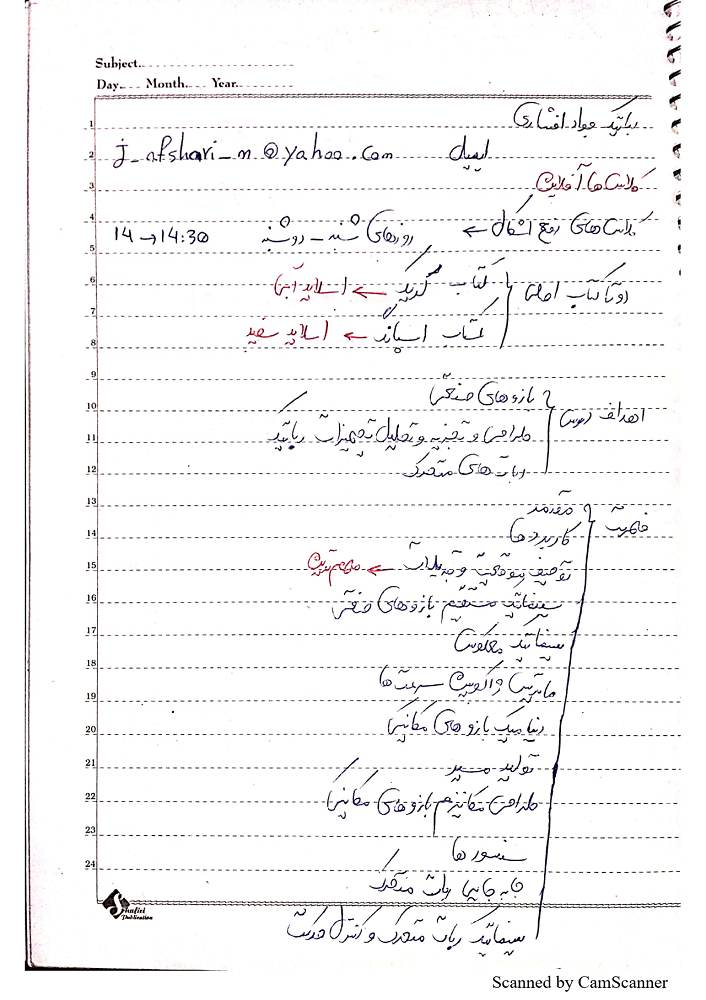 Subject.....................
Day.... Month.... Year..........
رباتیک جواد افشاری
ایمیل j_afshari_m@yahoo.com
کلاس ها آفلاین
کلاس های رفع اشکال ← روزهای شنبه - دوشنبه 14 → 14:30
دو تا کتاب اصلی
کتاب کریگ ← اسلاید آبی
کتاب اسپانگ ← اسلاید سفید
اهداف درس
بازوهای صنعتی
طراحی و تجزیه و تحلیل تجهیزات رباتیک
ربات های متحرک
فهرست
مقدمه
کاربردها
توصیف موقعیت و تبدیلات ← مهم ترین
سینماتیک مستقیم بازوهای صنعتی
سینماتیک معکوس
ماتریس ژاکوبین سرعت ها
دینامیک بازوهای مکانیکی
تولید مسیر
طراحی مکانیزم بازوهای مکانیکی
سنسورها
جابه جایی ربات متحرک
سینماتیک ربات متحرک و کنترل حرکت
1
2
3
4
5
6
7
8
9
10
11
12
13
14
15
16
17
18
19
20
21
22
23
24
Shafiei
Publication
Scanned by CamScanner